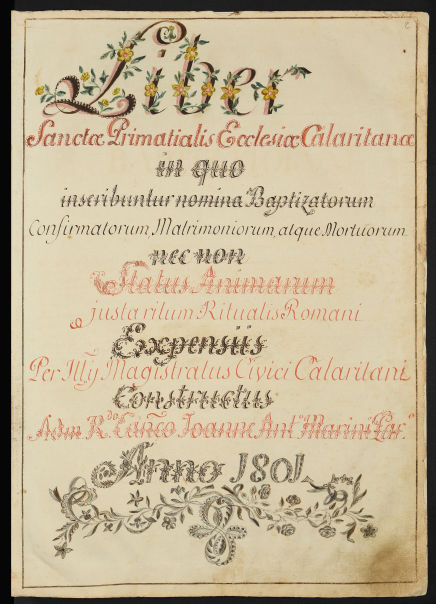 Liber
Sanctæ Primatialis Ecclesiæ Calaritanæ
in quo
inscribuntur nomina Baptizatorum
Confirmatorum, Matrimoniorum, atque Mortuorum
nec non
Status Animarum
justa ritum Ritualis Romani
Expensiis
Per Illj Magistratus Civici Calaritani
Constructus
Adm R.do Can.co Joanne Ant.o Marini
Anno 1801